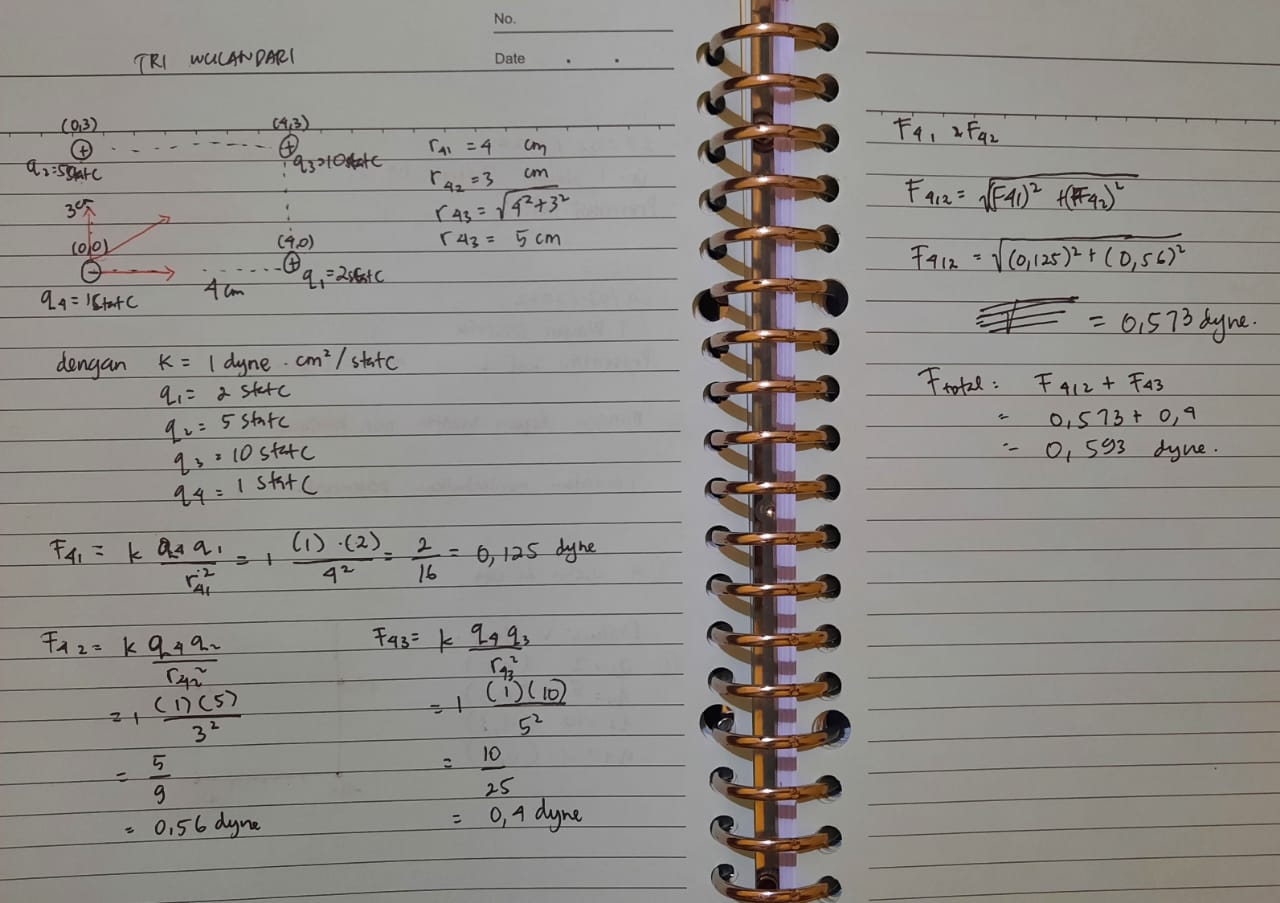 No.
TRI WULANDARI
Date . .
(0,3) (4,3)
q₂=5statC q₃=10statC
3cm
(0,0) (4,0)
4cm q₁=2statC
q₄=1statC
r₄₁ = 4 cm
r₄₂ = 3 cm
r₄₃ = √4²+3²
r₄₃ = 5 cm
dengan K = 1 dyne . cm²/statC
q₁ = 2 statC
q₂ = 5 statC
q₃ = 10 statC
q₄ = 1 statC
F₄₁ = k q₄ q₁ / r₄₁² = 1 (1) . (2) / 4² = 2/16 = 0,125 dyne
F₄₂ = k q₄ q₂ / r₄₂²
= 1 (1)(5) / 3²
= 5/9
= 0,56 dyne
F₄₃ = k q₄ q₃ / r₄₃²
= 1 (1)(10) / 5²
= 10/25
= 0,4 dyne
F₄₁ & F₄₂
F₄₁₂ = √(F₄₁)² + (F₄₂)²
F₄₁₂ = √(0,125)² + (0,56)²
= 0,573 dyne.
Ftotal = F₄₁₂ + F₄₃
= 0,573 + 0,4
= 0,593 dyne.